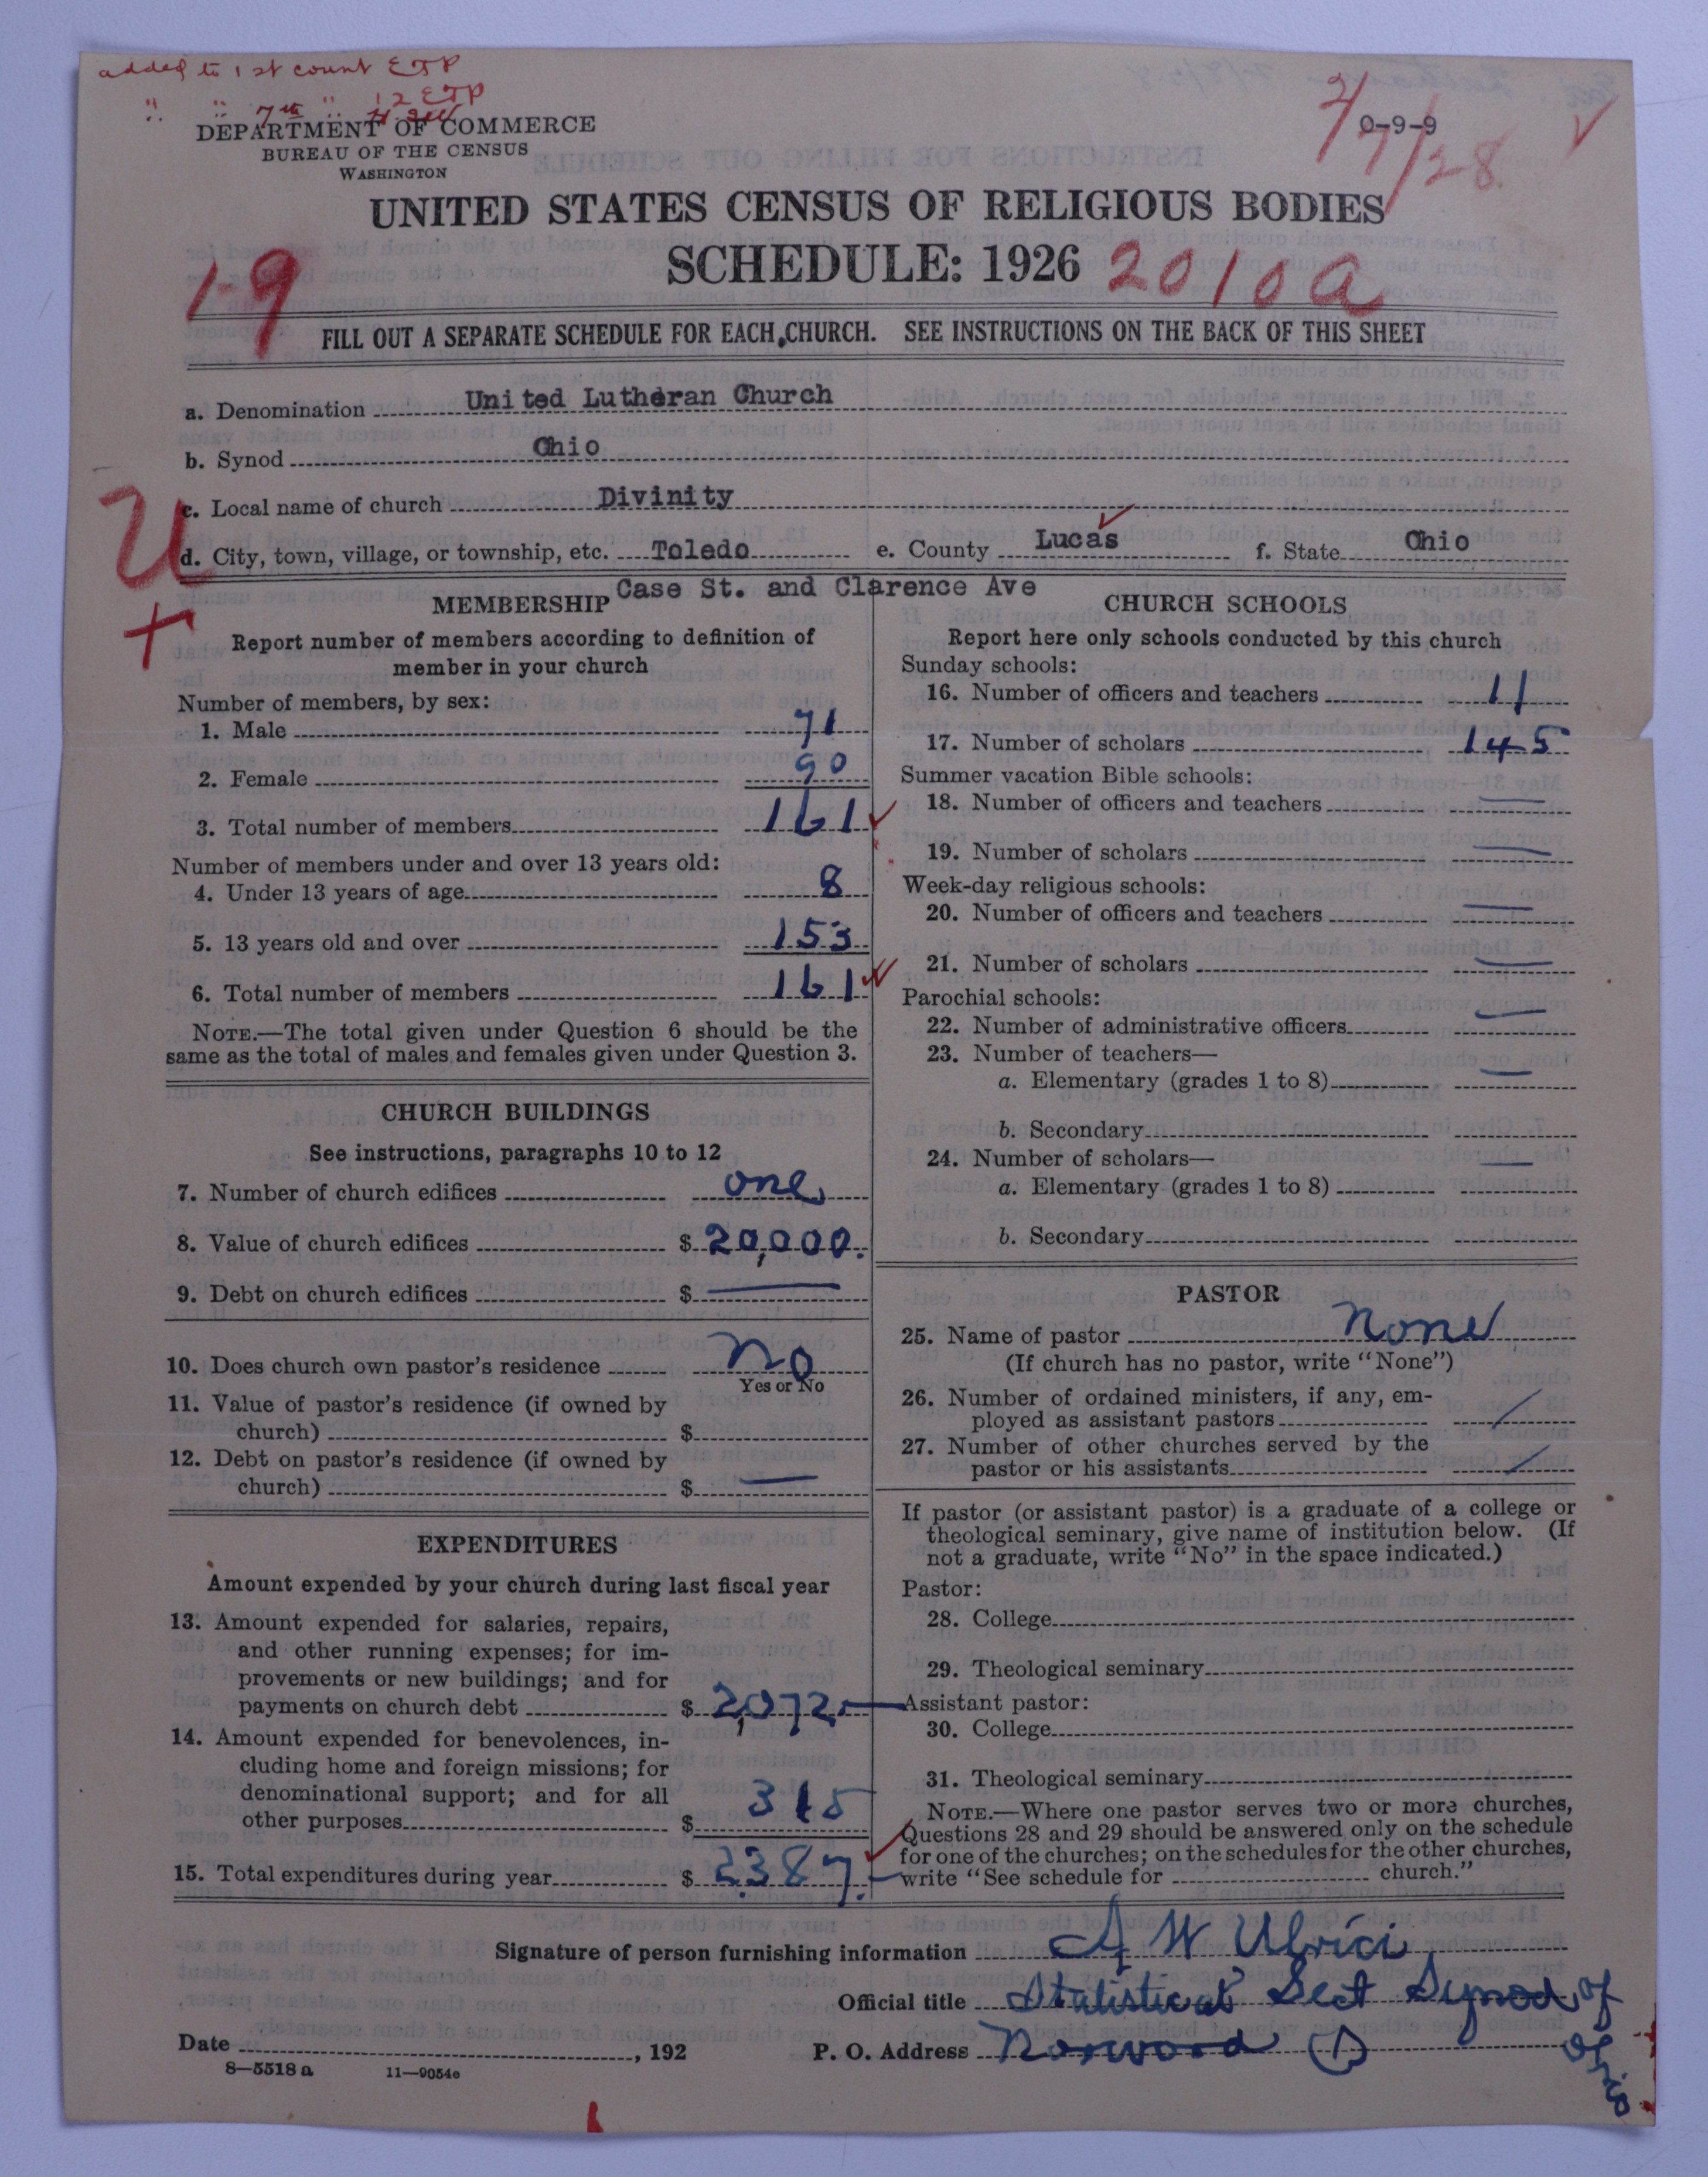 added to 1st count ETP
" " 7th " 12 ETP
DEPARTMENT OF COMMERCE
BUREAU OF THE CENSUS
WASHINGTON
0-9-9
2/7/28
UNITED STATES CENSUS OF RELIGIOUS BODIES
SCHEDULE: 1926
1-9
2010a
FILL OUT A SEPARATE SCHEDULE FOR EACH CHURCH. SEE INSTRUCTIONS ON THE BACK OF THIS SHEET
a. Denomination United Lutheran Church
b. Synod Ohio
c. Local name of church Divinity
d. City, town, village, or township, etc. Toledo e. County Lucas f. State Ohio
Case St. and Clarence Ave
MEMBERSHIP
Report number of members according to definition of
member in your church
Number of members, by sex:
1. Male 71
2. Female 90
3. Total number of members 161
Number of members under and over 13 years old:
4. Under 13 years of age 8
5. 13 years old and over 153
6. Total number of members 161
NOTE.—The total given under Question 6 should be the
same as the total of males and females given under Question 3.
CHURCH BUILDINGS
See instructions, paragraphs 10 to 12
7. Number of church edifices one
8. Value of church edifices $ 20,000.
9. Debt on church edifices $ —
10. Does church own pastor's residence No
Yes or No
11. Value of pastor's residence (if owned by
church) $
12. Debt on pastor's residence (if owned by
church) $ —
EXPENDITURES
Amount expended by your church during last fiscal year
13. Amount expended for salaries, repairs,
and other running expenses; for im-
provements or new buildings; and for
payments on church debt $ 2,072.—
14. Amount expended for benevolences, in-
cluding home and foreign missions; for
denominational support; and for all
other purposes $ 315
15. Total expenditures during year $ 2,387.—
CHURCH SCHOOLS
Report here only schools conducted by this church
Sunday schools:
16. Number of officers and teachers 11
17. Number of scholars 145
Summer vacation Bible schools:
18. Number of officers and teachers —
19. Number of scholars —
Week-day religious schools:
20. Number of officers and teachers —
21. Number of scholars —
Parochial schools:
22. Number of administrative officers —
23. Number of teachers—
a. Elementary (grades 1 to 8) —
b. Secondary
24. Number of scholars— —
a. Elementary (grades 1 to 8)
b. Secondary
PASTOR
25. Name of pastor None
(If church has no pastor, write "None")
26. Number of ordained ministers, if any, em-
ployed as assistant pastors /
27. Number of other churches served by the
pastor or his assistants /
If pastor (or assistant pastor) is a graduate of a college or
theological seminary, give name of institution below. (If
not a graduate, write "No" in the space indicated.)
Pastor:
28. College
29. Theological seminary
Assistant pastor:
30. College
31. Theological seminary
NOTE.—Where one pastor serves two or more churches,
Questions 28 and 29 should be answered only on the schedule
for one of the churches; on the schedules for the other churches,
write "See schedule for church."
Signature of person furnishing information A W Ulrici
Official title Statistical Sect Synod of
Ohio
Date , 192 P. O. Address Norwood O
8—5518 a 11—9054c